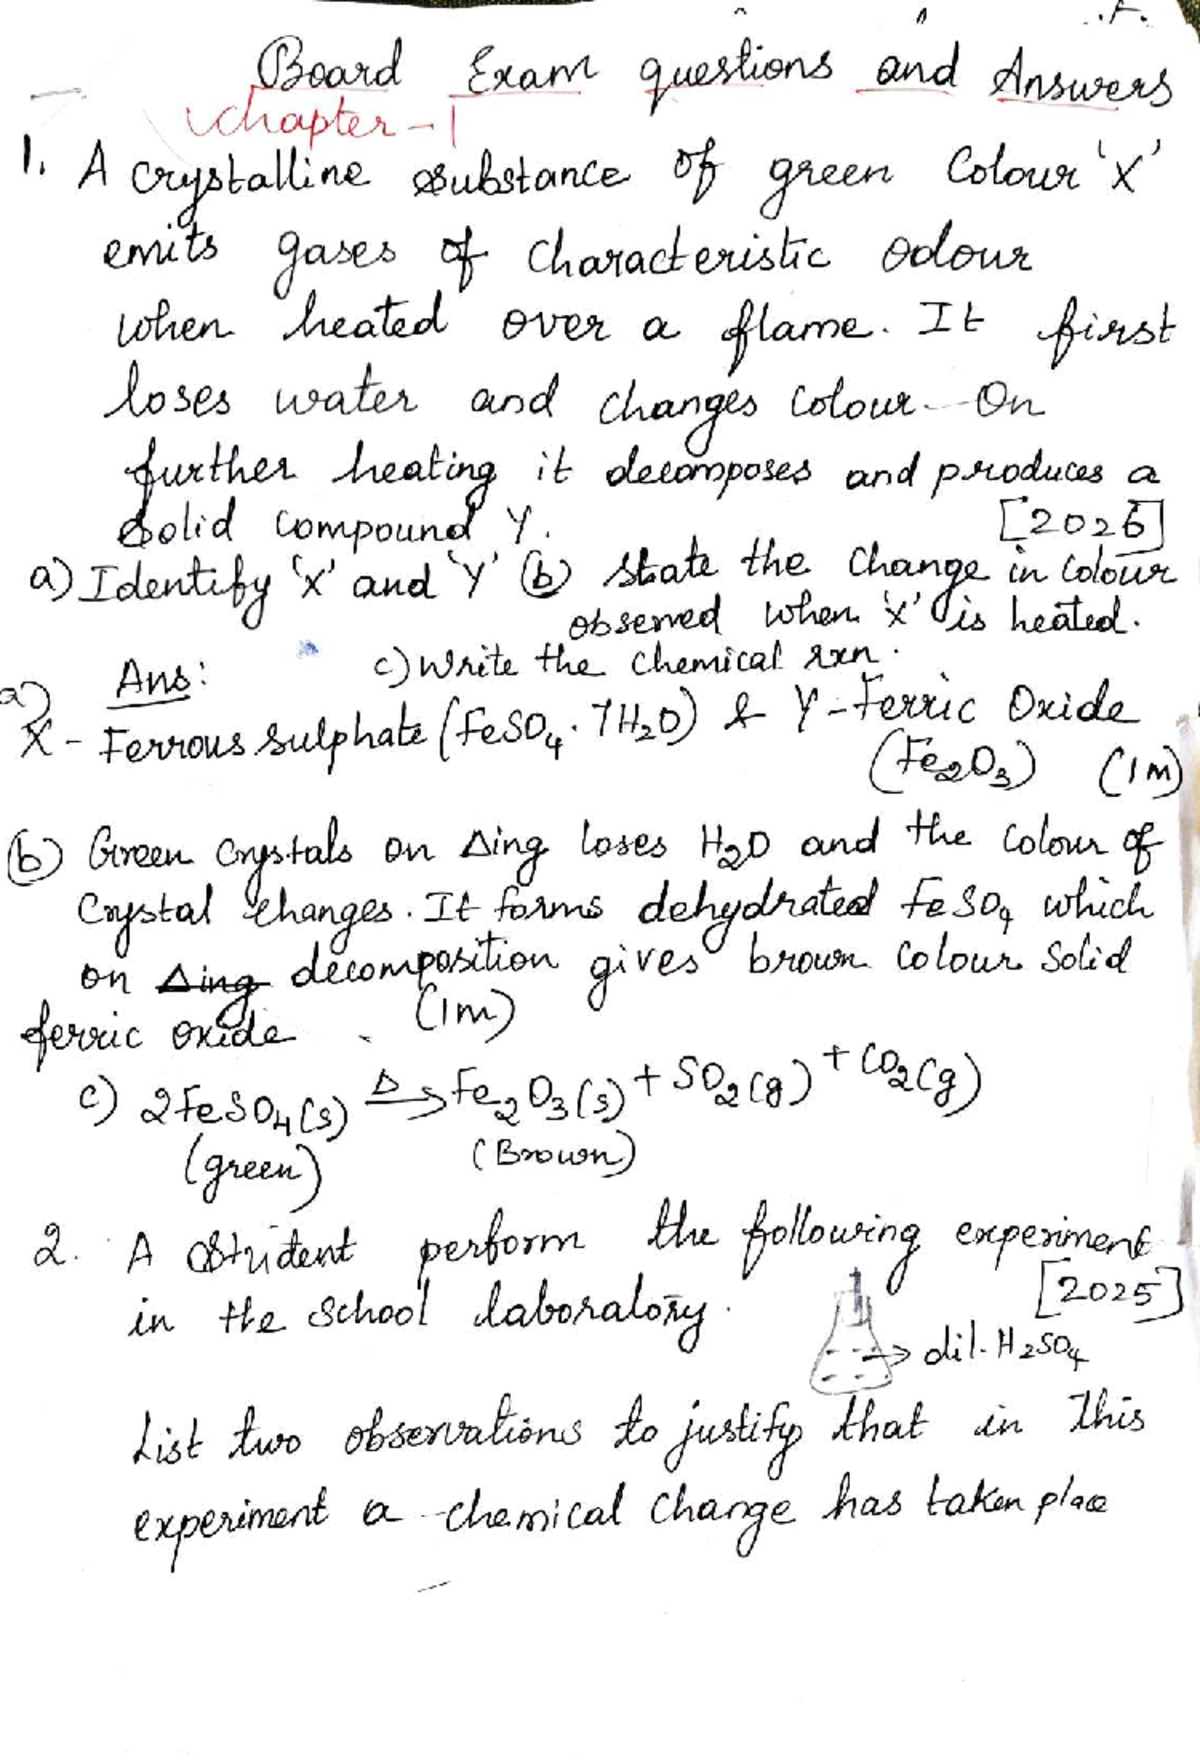 Board Exam questions and Answers
Chapter-1
1. A crystalline substance of green Colour 'X'
emits gases of characteristic odour
when heated over a flame. It first
loses water and changes colour. On
further heating it decomposes and produces a
solid compound Y. [2026]
a) Identify 'X' and 'Y' (b) State the change in colour
observed when 'X' is heated.
Ans: c) Write the chemical rxn.
a) X - Ferrous sulphate (FeSO₄·7H₂O) & Y - Ferric Oxide
(Fe₂O₃) (1m)
(b) Green crystals on Δing loses H₂O and the colour of
crystal changes. It forms dehydrated FeSO₄ which
on Δing decomposition gives brown colour solid
ferric oxide (1m)
c) 2FeSO₄(s) Δ→ Fe₂O₃(s) + SO₂(g) + CO₂(g)
(green) (Brown)
2. A Student perform the following experiment
in the school laboratory. [2025]
→ dil. H₂SO₄
List two observations to justify that in this
experiment a chemical change has taken place